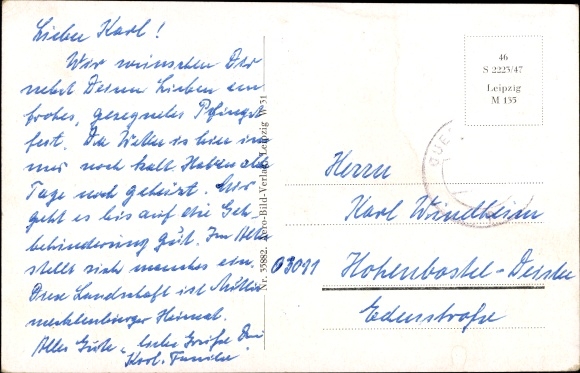 Lieber Karl!
Wir wünschen Dir
nebst Deinen Lieben ein
frohes, gesegnetes Pfingst
fest. Das Wetter is hier im
mer noch kalt. Haben alle
Tage noch geheizt. Mir
geht es bis auf die Geh
behinderung gut. Im Alter
stellt sich manches ein.
Diese Landschaft ist
mecklenburger Heimat.
Alles Gute, Grüße Dein
Karl. Familie
Nr. 35882. Aero-Bild-Verlag, Leipzig W 31
46
S 2223/47
Leipzig
M 135
Herrn
Karl Windheim
03011 Hohenbostel-Deister
Edenstraße